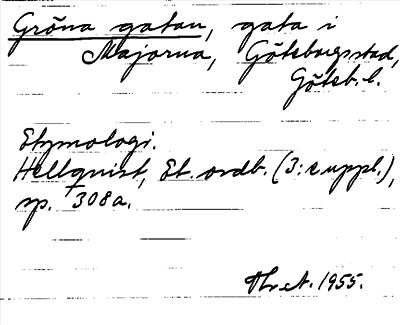 Gröna gatan, gata i
Majorna, Göteborgsstad,
Göteb. l.
Etymologi.
Hellquist, Et. ordb. (3:e uppl.),
sp. 308a.
1955.